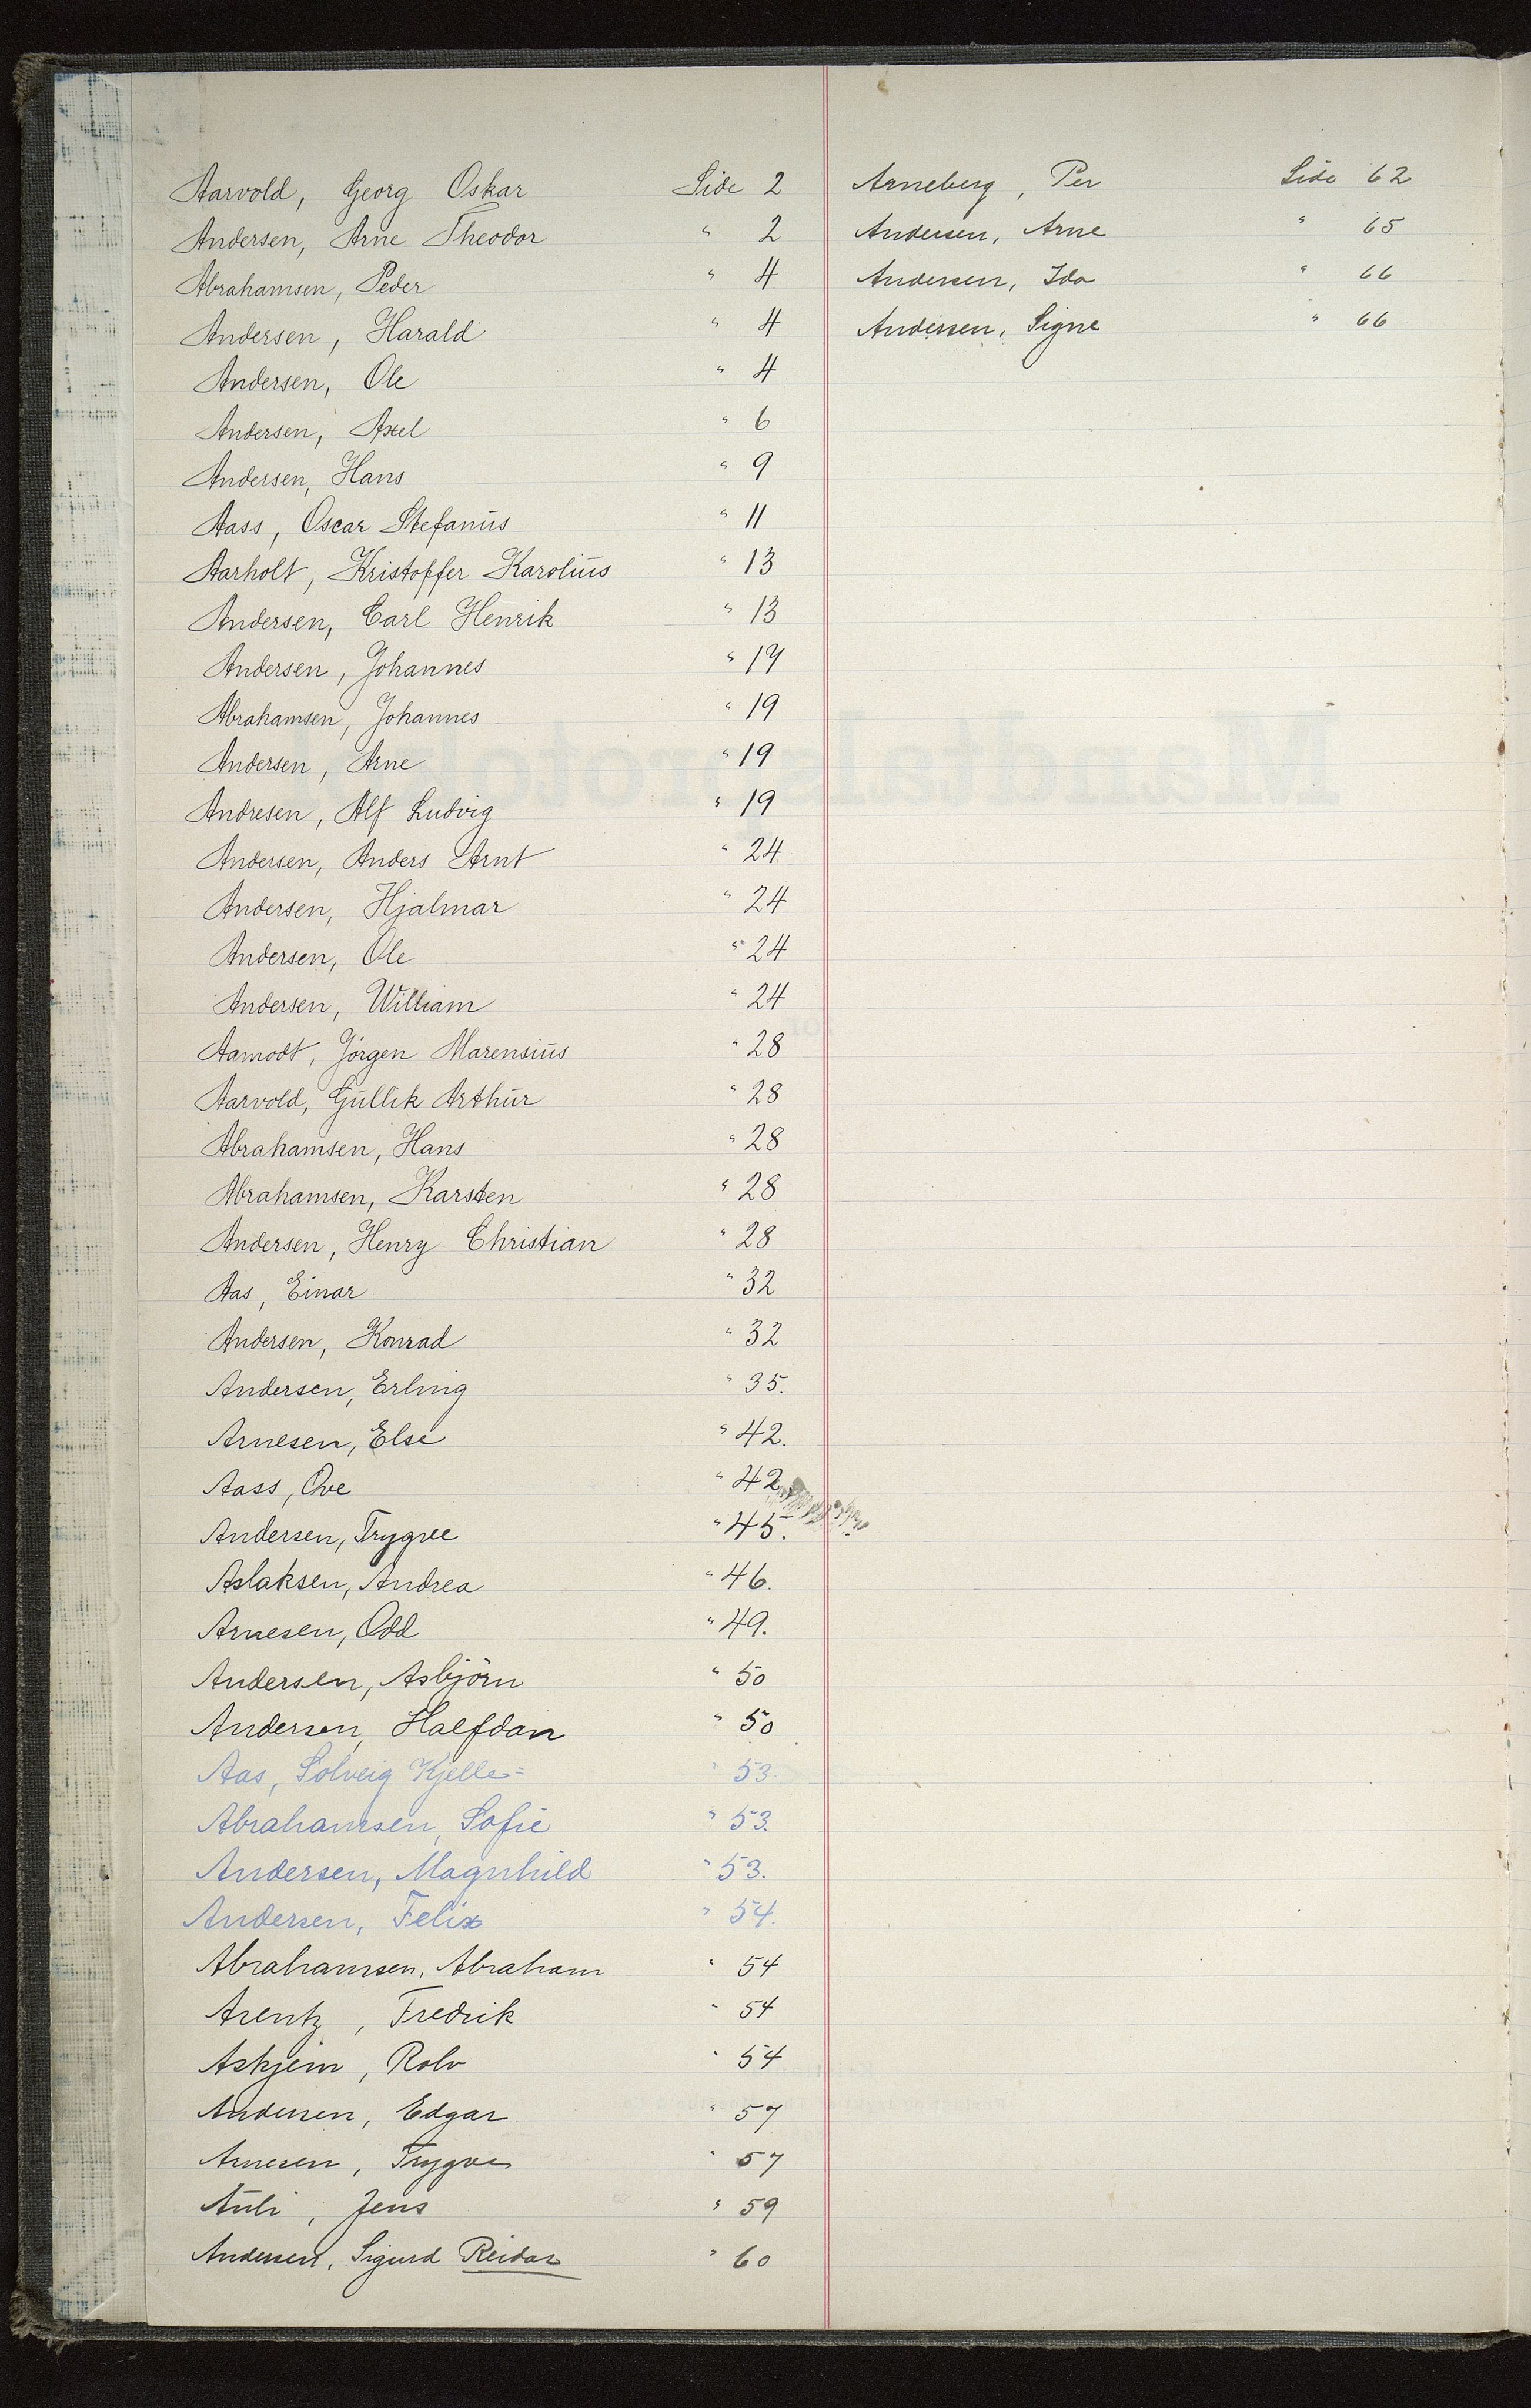 Aarvold, Georg Oskar Side 2
Andersen, Arne Theodor " 2
Abrahamsen, Peder " 4
Andersen, Harald " 4
Andersen, Ole " 4
Andersen, Axel " 6
Andersen, Hans " 9
Aass, Oscar Stefanus " 11
Aarholt, Kristoffer Karolius " 13
Andersen, Carl Henrik " 13
Andersen, Johannes "
Abrahamsen, Johannes " 19
Andersen, Arne " 19
Andresen, Alf Ludvig " 19
Andersen, Anders Arnt " 24
Andersen, Hjalmar " 24
Andersen, Ole " 24
Andersen, William " 24
Aamodt, Jörgen Marensius " 28
Aarvold, Gullik Arthur " 28
Abrahamsen, Hans " 28
Abrahamsen, Karsten " 28
Andersen, Henry Christian " 28
Aas, Einar " 32
Andersen, Konrad " 32
Andersen, Erling " 35.
Arnesen, Else " 42.
Aass, Ove " 42
Andersen, Trygve " 45.
Aslaksen, Andrea " 46.
Arnesen, Odd " 49.
Andersen, Asbjörn " 50
Andersen, Halfdan " 50
Aas, Solveig Kjelle= " 53.
Abrahamsen, Sofie " 53.
Andersen, Magnhild " 53.
Andersen, Felix " 54.
Abrahamsen, Abraham " 54
Arentz, Fredrik " 54
Askjem, Rolv " 54
Andersen, Edgar " 57
Arnesen, Trygve " 57
Auli, Jens " 59
Andersen, Sigurd Reidar " 60
Arneberg, Per Side 62
Andersen, Arne " 65
Andersen, Ida " 66
Andersen, Signe " 66